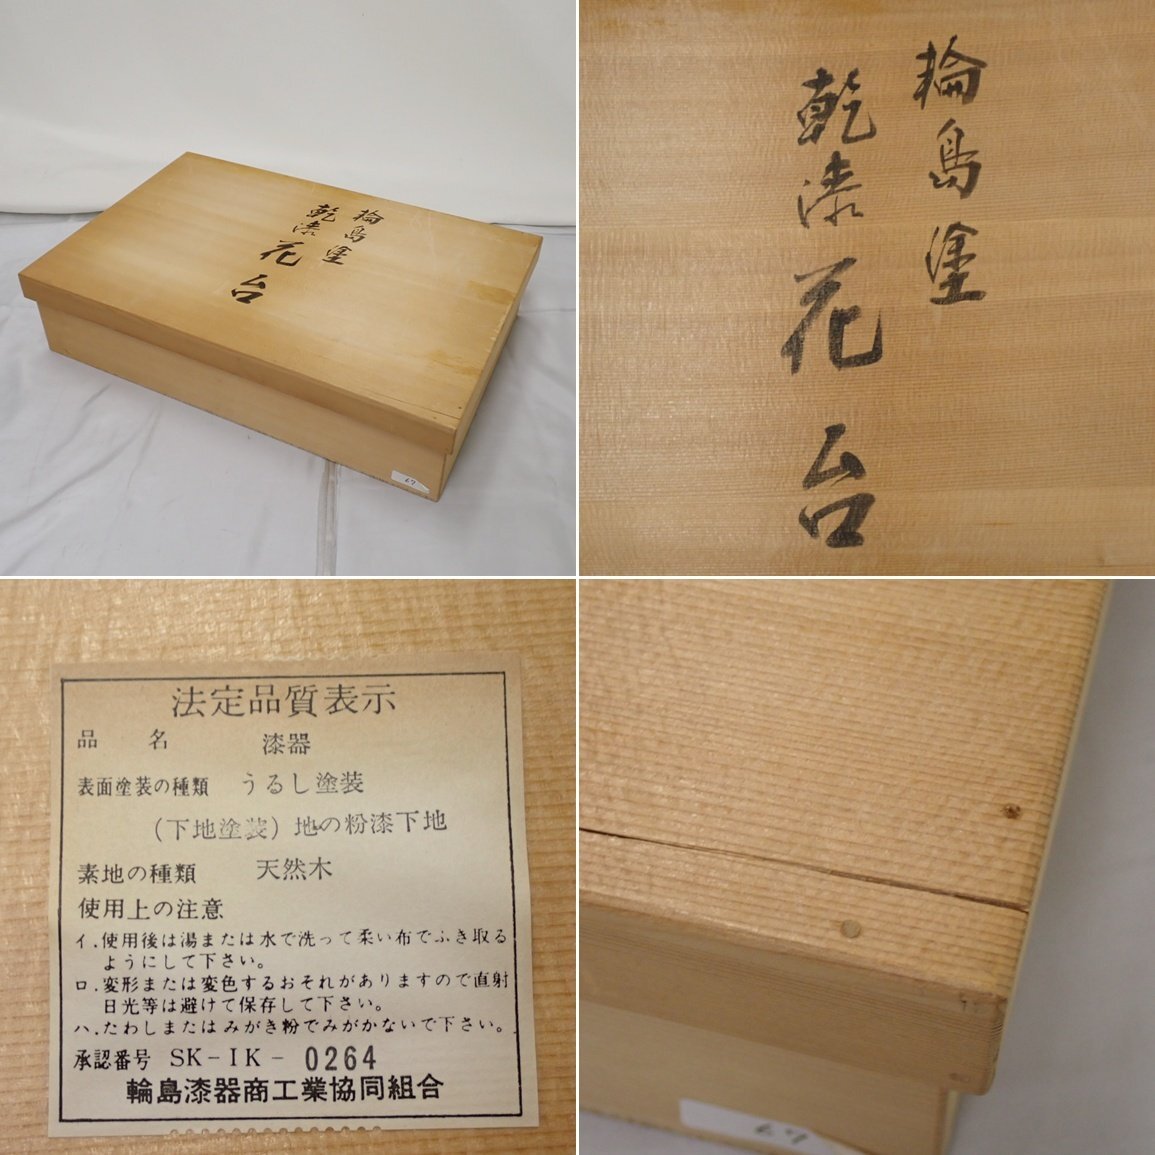 輪島塗
乾漆 花台
67
輪島塗
乾漆花台
法定品質表示
品 名 漆器
表面塗装の種類 うるし塗装
(下地塗装) 地の粉漆下地
素地の種類 天然木
使用上の注意
イ.使用後は湯または水で洗って柔い布でふき取る
ようにして下さい。
ロ.変形または変色するおそれがありますので直射
日光等は避けて保存して下さい。
ハ.たわしまたはみがき粉でみがかないで下さい。
承認番号 SK-IK-0264
輪島漆器商工業協同組合
67